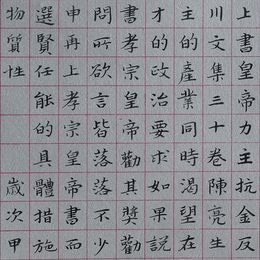 上書皇帝力主抗金反
川文集三十卷陳亮生
主的產業同時渴望在
才的政治要求如果說
書孝宗皇帝勸其獎勸
問所欲言皆落落不少
申再上孝宗皇帝書而
選賢任能的具體措施
物質性
歲次甲